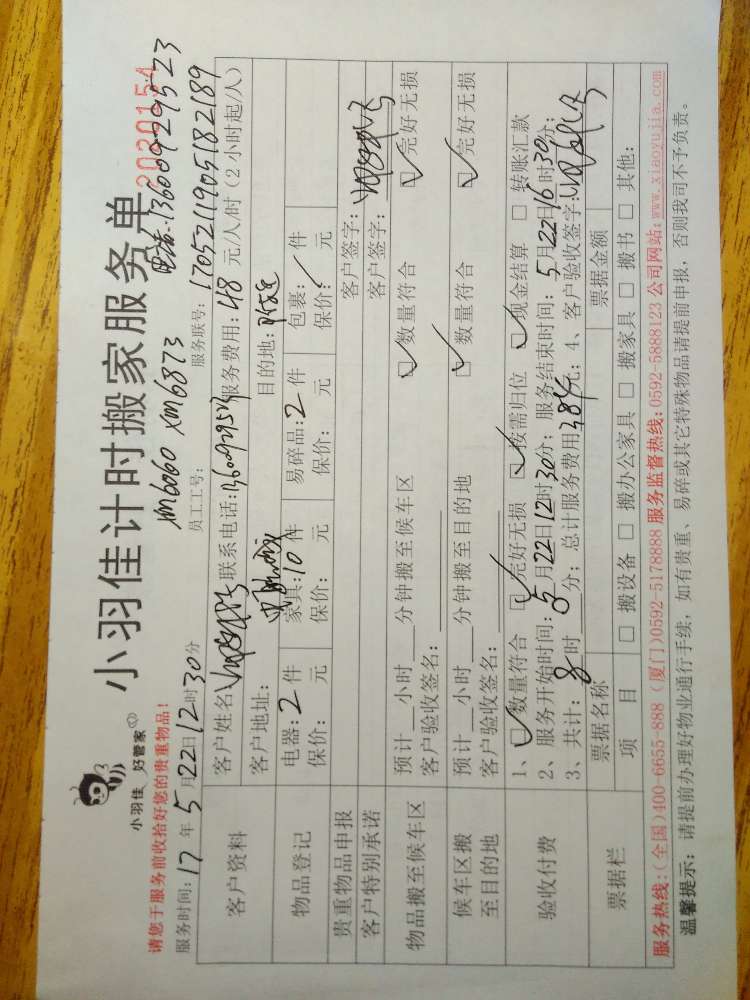 小羽佳 好管家
小羽佳计时搬家服务单
2030154
请您于服务前收拾好您的贵重物品!
xm6060 xm6873
电话:13600929523
服务时间:17年5月22日12时30分 员工工号: 服务联号:17052119051 82189
客户资料
客户姓名: 联系电话: 服务费用:48元/人/时(2小时起/人)
客户地址: 目的地:
物品登记
电器:2件 家具:10件 易碎品:2件 包裹:/件
保价: 元 保价: 元 保价: 元 保价: 元
贵重物品申报 客户签字:
客户特别承诺 客户签字:
物品搬至候车区
预计__小时__分钟搬至候车区 ☑数量符合 ☑完好无损
客户验收签名:
候车区搬至目的地
预计__小时__分钟搬至目的地 ☑数量符合 ☑完好无损
客户验收签名:
验收付费
1、☑数量符合 ☑完好无损 ☑按需归位 ☑现金结算 □转账汇款
2、服务开始时间:5月22日12时30分;服务结束时间:5月22日16时30分;
3、共计:8时__分;总计服务费用384元;4、客户验收签字:
票据栏
票据名称 票据金额
项目 □搬设备 □搬办公家具 □搬家具 □搬书 □其他:
服务热线:(全国)400-6655-888 (厦门)0592-5178888 服务监督热线:0592-5888123 公司网站:www.xiaoyujia.com
温馨提示:请提前办理好物业通行手续,如有贵重、易碎或其它特殊物品请提前申报,否则我司不予负责。